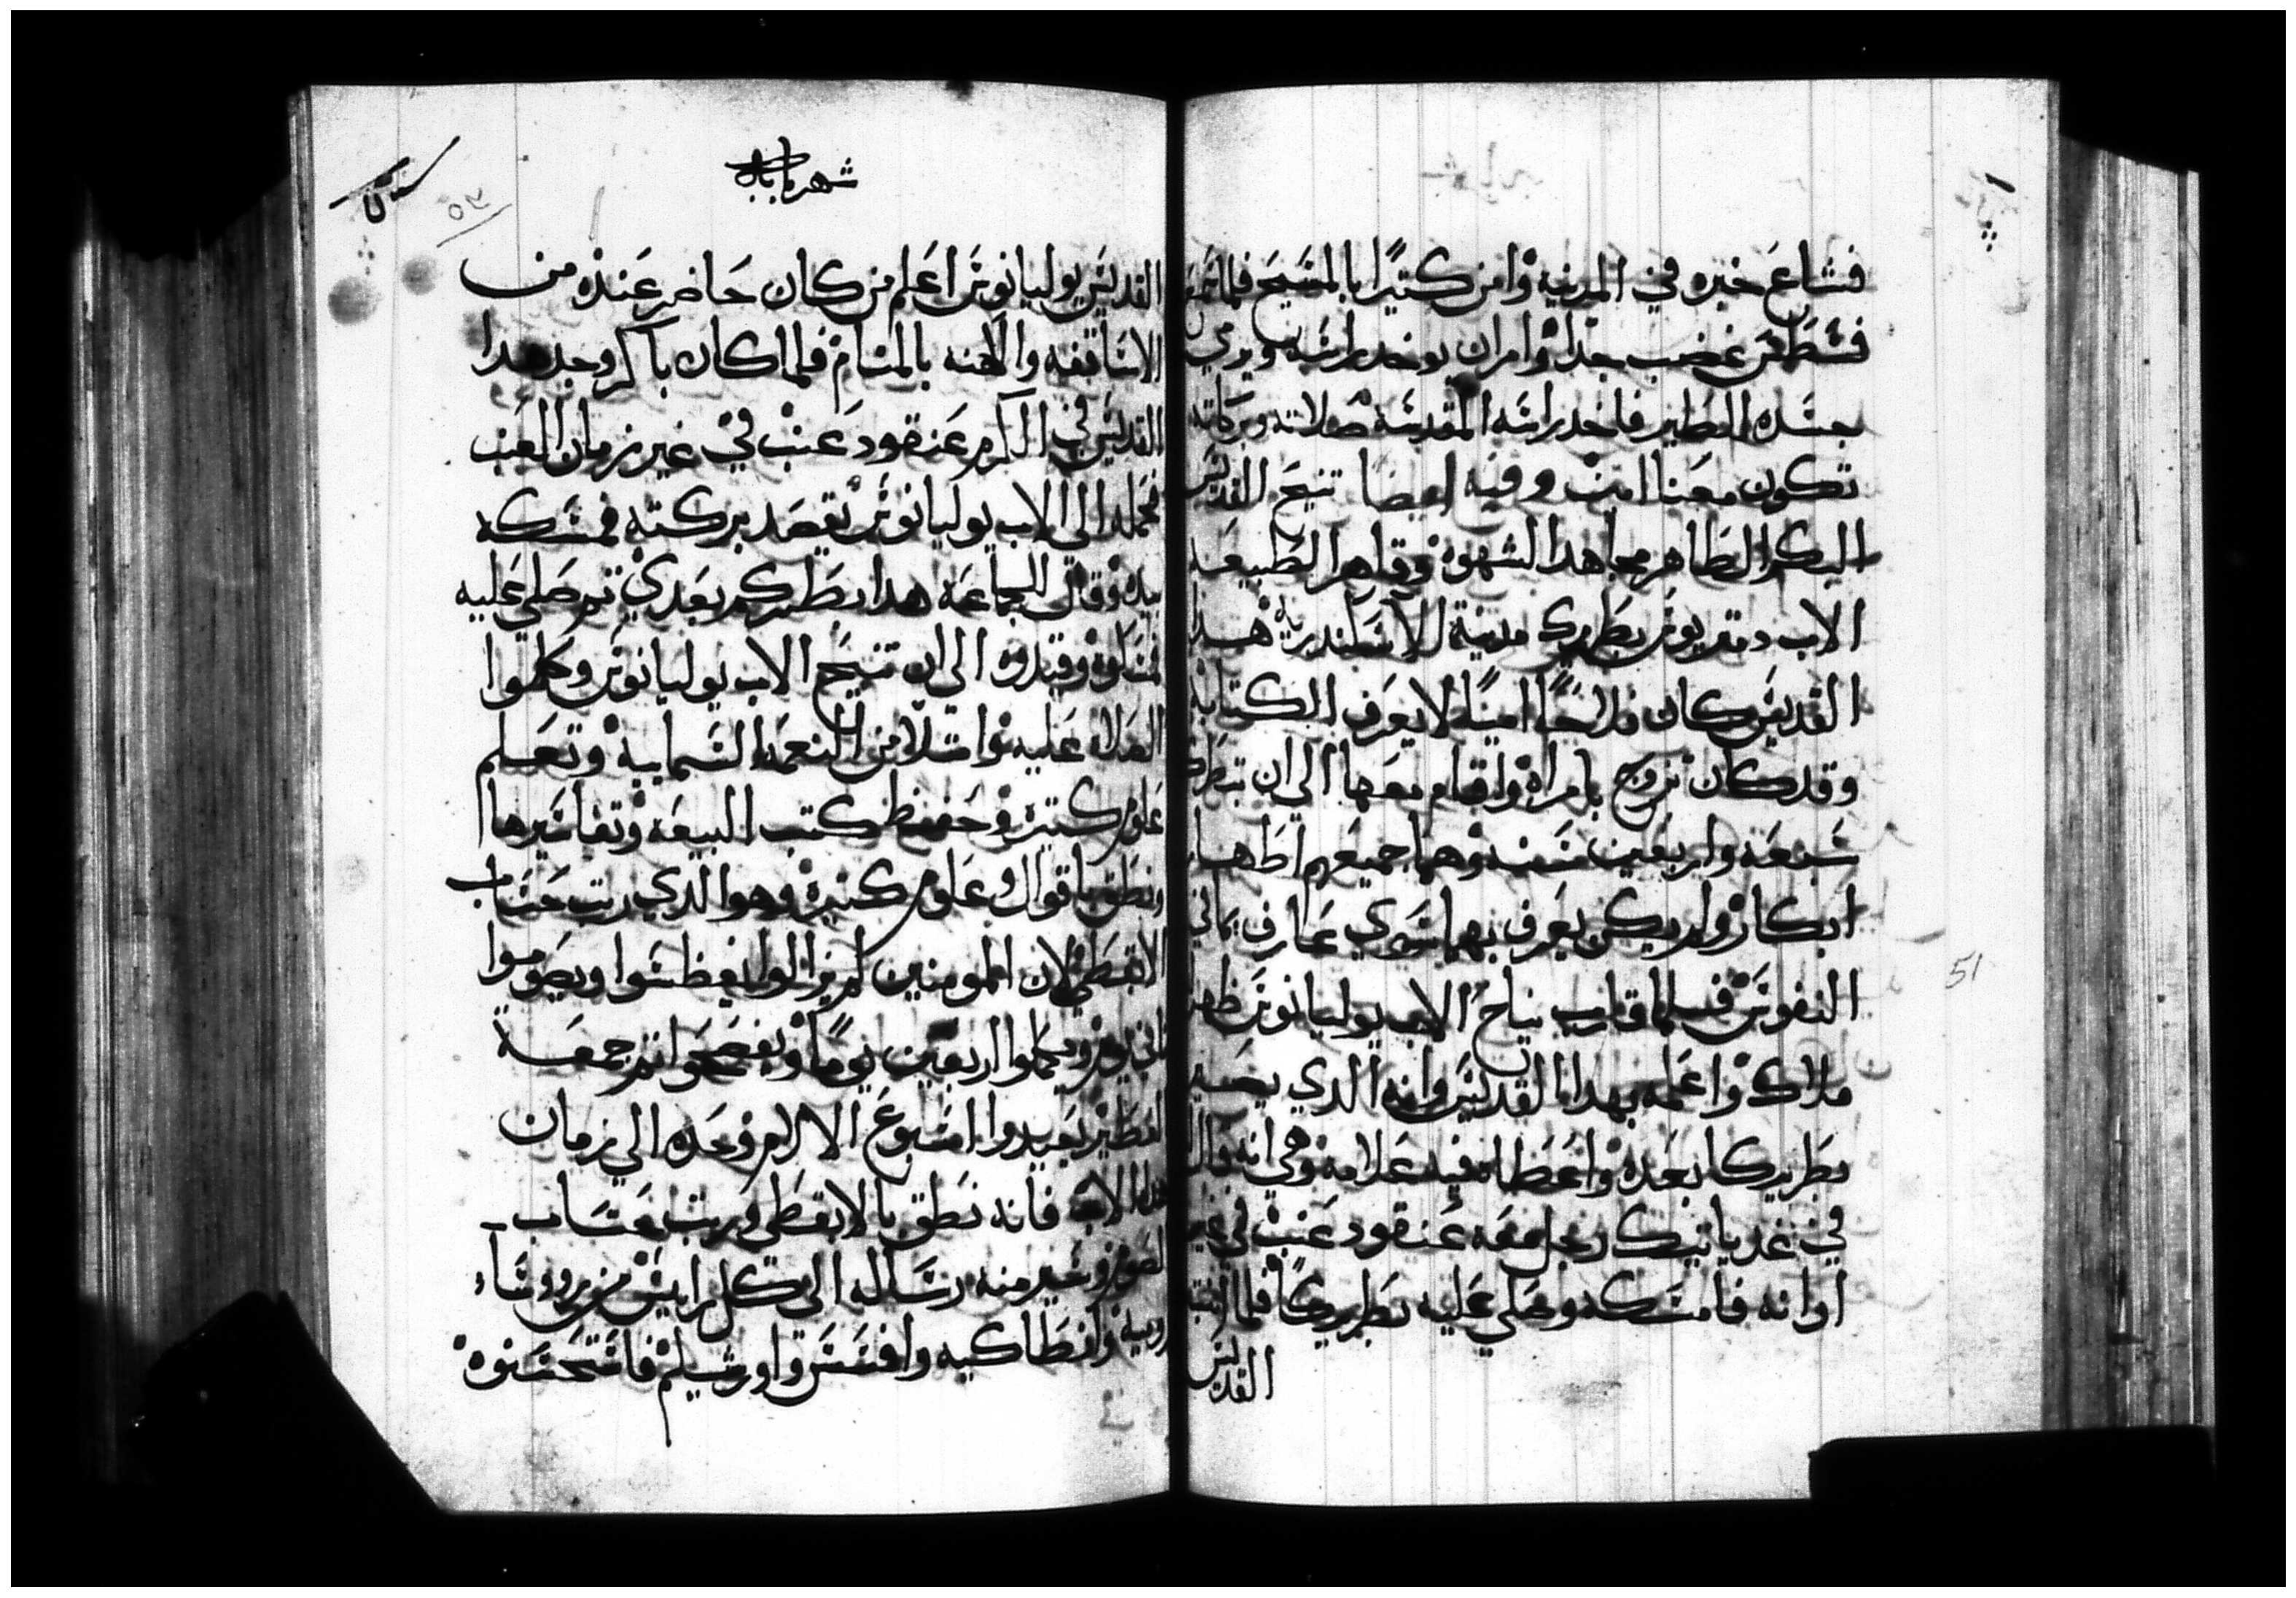 فشاع خبره في المدينه وامن كتيرًا بالمسيح فلما سمع
فسطس غضب جدا وامر ان يوخد راسه ويرمي
جسده للطير فاخد راسه المقدسه صلاته وبركاته
تكون معنا امين وفيه ايضا تنيح القديس
البكر الطاهر مجاهد الشهوه وقاهر الطبيعه
الاب دمتريوس بطريرك مدينة الاسكندرية هدا
القديس كان فلاحًا اميًا لا يعرف الكتابه
وقد كان تزوج بامراه واقام معها الي ان تبطرك
سبعه واربعين سنه وهما جميعهم اطهار
ابكار ولم يكن يعرف بهما سوي عارف مافي
النفوس فلما قارب نياح الاب يوليانوس ظهر
ملاك واعلمه بهدا القديس وانه الدي يصير
بطريركا بعده واعطاه فيه علامه وهي انه قال
في غد ياتيك رجل معه عنقود عنب في غير
اوانه فامسكه وصلي عليه بطريركًا فلما انتبه
القديس
شهر بابه
القديس يوليانوس اعلم من كان حاضر عنده من
الاساقفه والكهنه بالمنام فلما كان باكر وجد هدا
القديس في الكرم عنقود عنب في غير زمان العنب
فحمله الي الاب يوليانوس يقصد بركته فمسكه
بيده وقال للجماعه هدا بطركم بعدي تم صلي عليه
فمسكوه وقيدوه الي ان تنيح الاب يوليانوس وكملوا
الصلاه عليه وامتلا من النعمه السماييه وتعلم
علوم كتيره وحفظ كتب البيعه وتفاسيرها
ونطق باقوال وعلوم كتيره وهو الدي رتب حساب
الابقطي لان المومنين لم يزالوا يغطسوا ويصوموا
تاني يوم ويكملوا اربعين يومًا ويفصحوا تم جمعة
الفطير يعيدوا اسبوع الالام وحده الي زمان
هدا الاب فانه نطق بالابقطي ورتب حساب
الصوم وسير منه رساله الي كل راييس من روسا
روميه وانطاكيه وافسس واورشليم فاستحسنوه
51